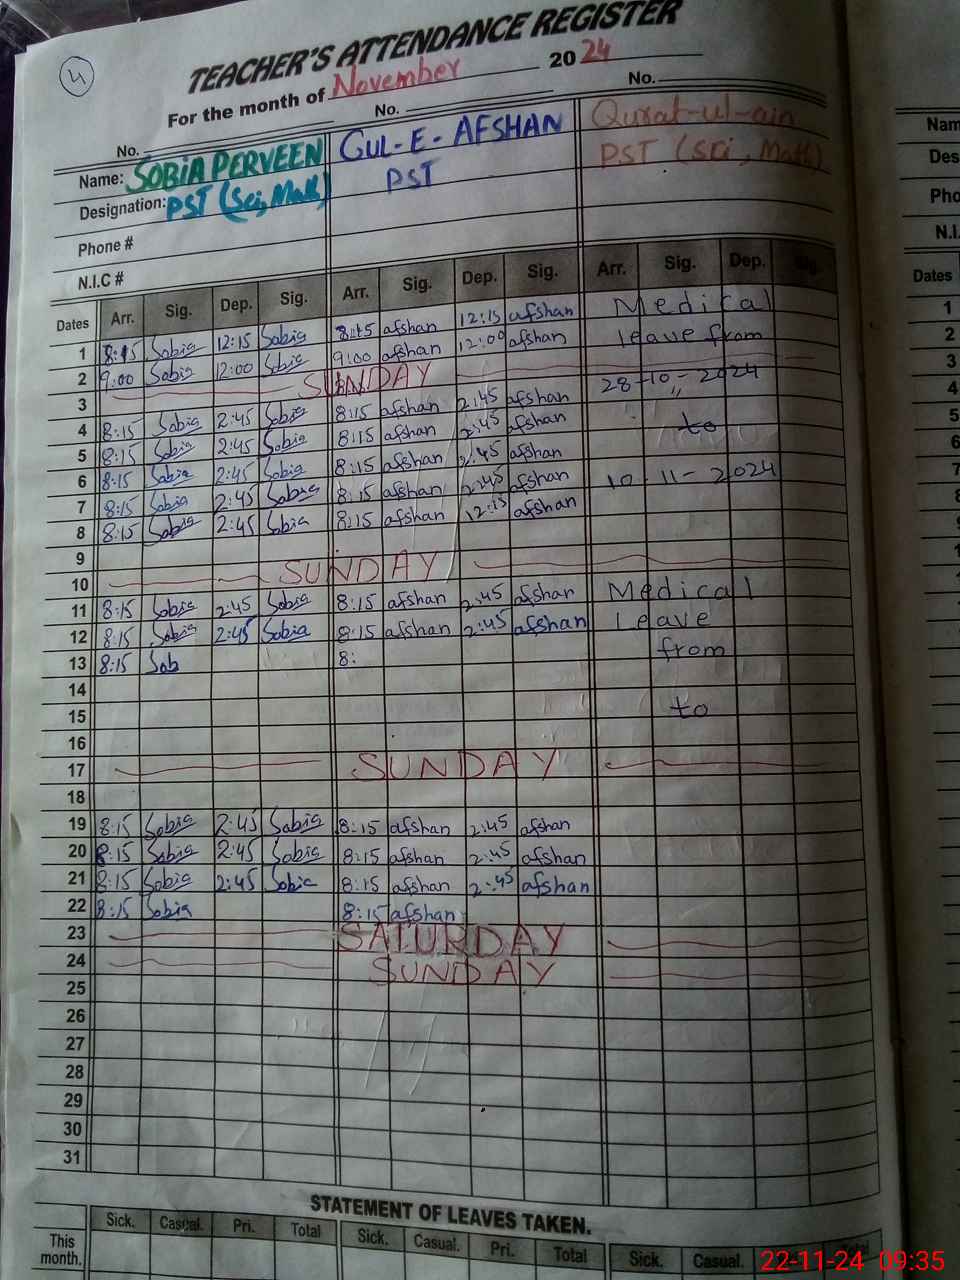 4
TEACHER'S ATTENDANCE REGISTER
For the month of November 2024
No. No. No.
Name: SOBIA PERVEEN GUL-E-AFSHAN Qurat-ul-ain
Designation: PST (Sci, Math) PST PST (Sci, Math)
Phone #
N.I.C #
Dates Arr. Sig. Dep. Sig. Arr. Sig. Dep. Sig. Arr. Sig. Dep. Sig.
1 8:15 Sobia 12:15 Sobia 8:15 afshan 12:15 afshan Medical
2 9:00 Sobia 12:00 Sobia 9:00 afshan 12:00 afshan leave from
3 SUNDAY
4 8:15 Sobia 2:45 Sobia 8:15 afshan 2:45 afshan 28-10-2024
5 8:15 Sobia 2:45 Sobia 8:15 afshan 2:45 afshan to
6 8:15 Sobia 2:45 Sobia 8:15 afshan 2:45 afshan
7 8:15 Sobia 2:45 Sobia 8:15 afshan 2:45 afshan 10-11-2024
8 8:15 Sobia 2:45 Sobia 8:15 afshan 12:15 afshan
9
10 SUNDAY
11 8:15 Sobia 2:45 Sobia 8:15 afshan 2:45 afshan Medical
12 8:15 Sobia 2:45 Sobia 8:15 afshan 2:45 afshan leave
13 8:15 Sob 8: from
14
15 to
16
17 SUNDAY
18
19 8:15 Sobia 2:45 Sobia 8:15 afshan 2:45 afshan
20 8:15 Sobia 2:45 Sobia 8:15 afshan 2:45 afshan
21 8:15 Sobia 2:45 Sobia 8:15 afshan 2:45 afshan
22 8:15 Sobia 8:15 afshan
23 SATURDAY
24 SUNDAY
25
26
27
28
29
30
31
STATEMENT OF LEAVES TAKEN.
Sick. Casual. Pri. Total Sick. Casual. Pri. Total Sick. Casual.
This month.
Nam
Des
Pho
N.I.
Dates
1
2
3
4
5
22-11-24 09:35